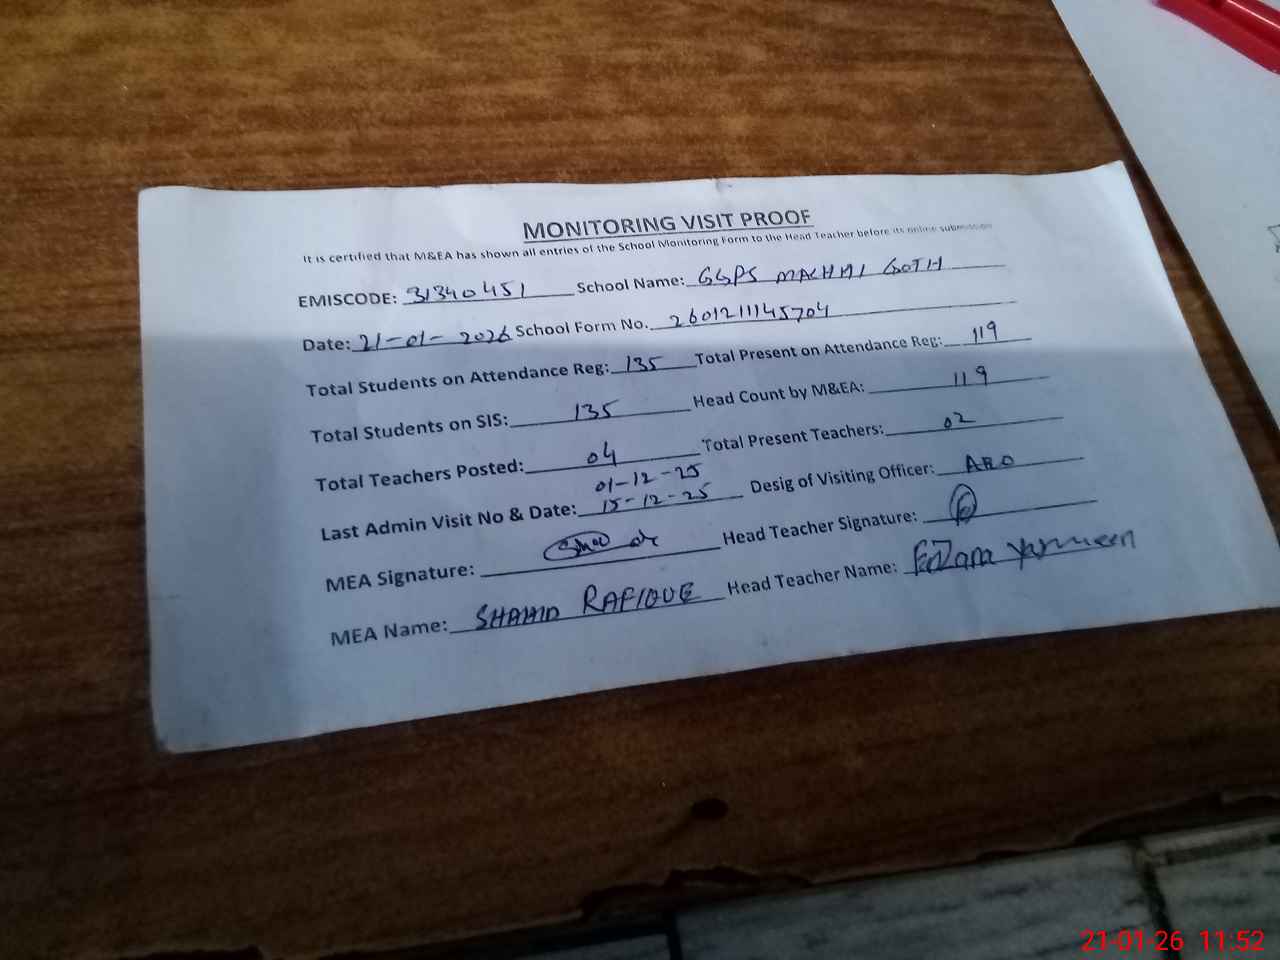 MONITORING VISIT PROOF
It is certified that M&EA has shown all entries of the School Monitoring Form to the Head Teacher before its online submission
EMISCODE: 31340451 School Name: GGPS MACHHI GOTH
Date: 21-01-2026 School Form No. 2601211145704
Total Students on Attendance Reg: 135 Total Present on Attendance Reg: 119
Total Students on SIS: 135 Head Count by M&EA: 119
Total Teachers Posted: 04 Total Present Teachers: 02
01-12-25
Last Admin Visit No & Date: 15-12-25 Desig of Visiting Officer:
MEA Signature: Head Teacher Signature:
MEA Name: SHAHID RAFIQUE Head Teacher Name: Yasmeen
21-01-26 11:52